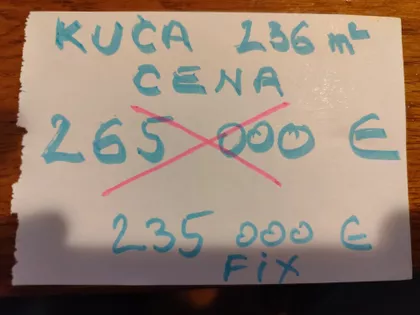 KUĆA 236 m²
CENA
265 000 €
235 000 €
FiX